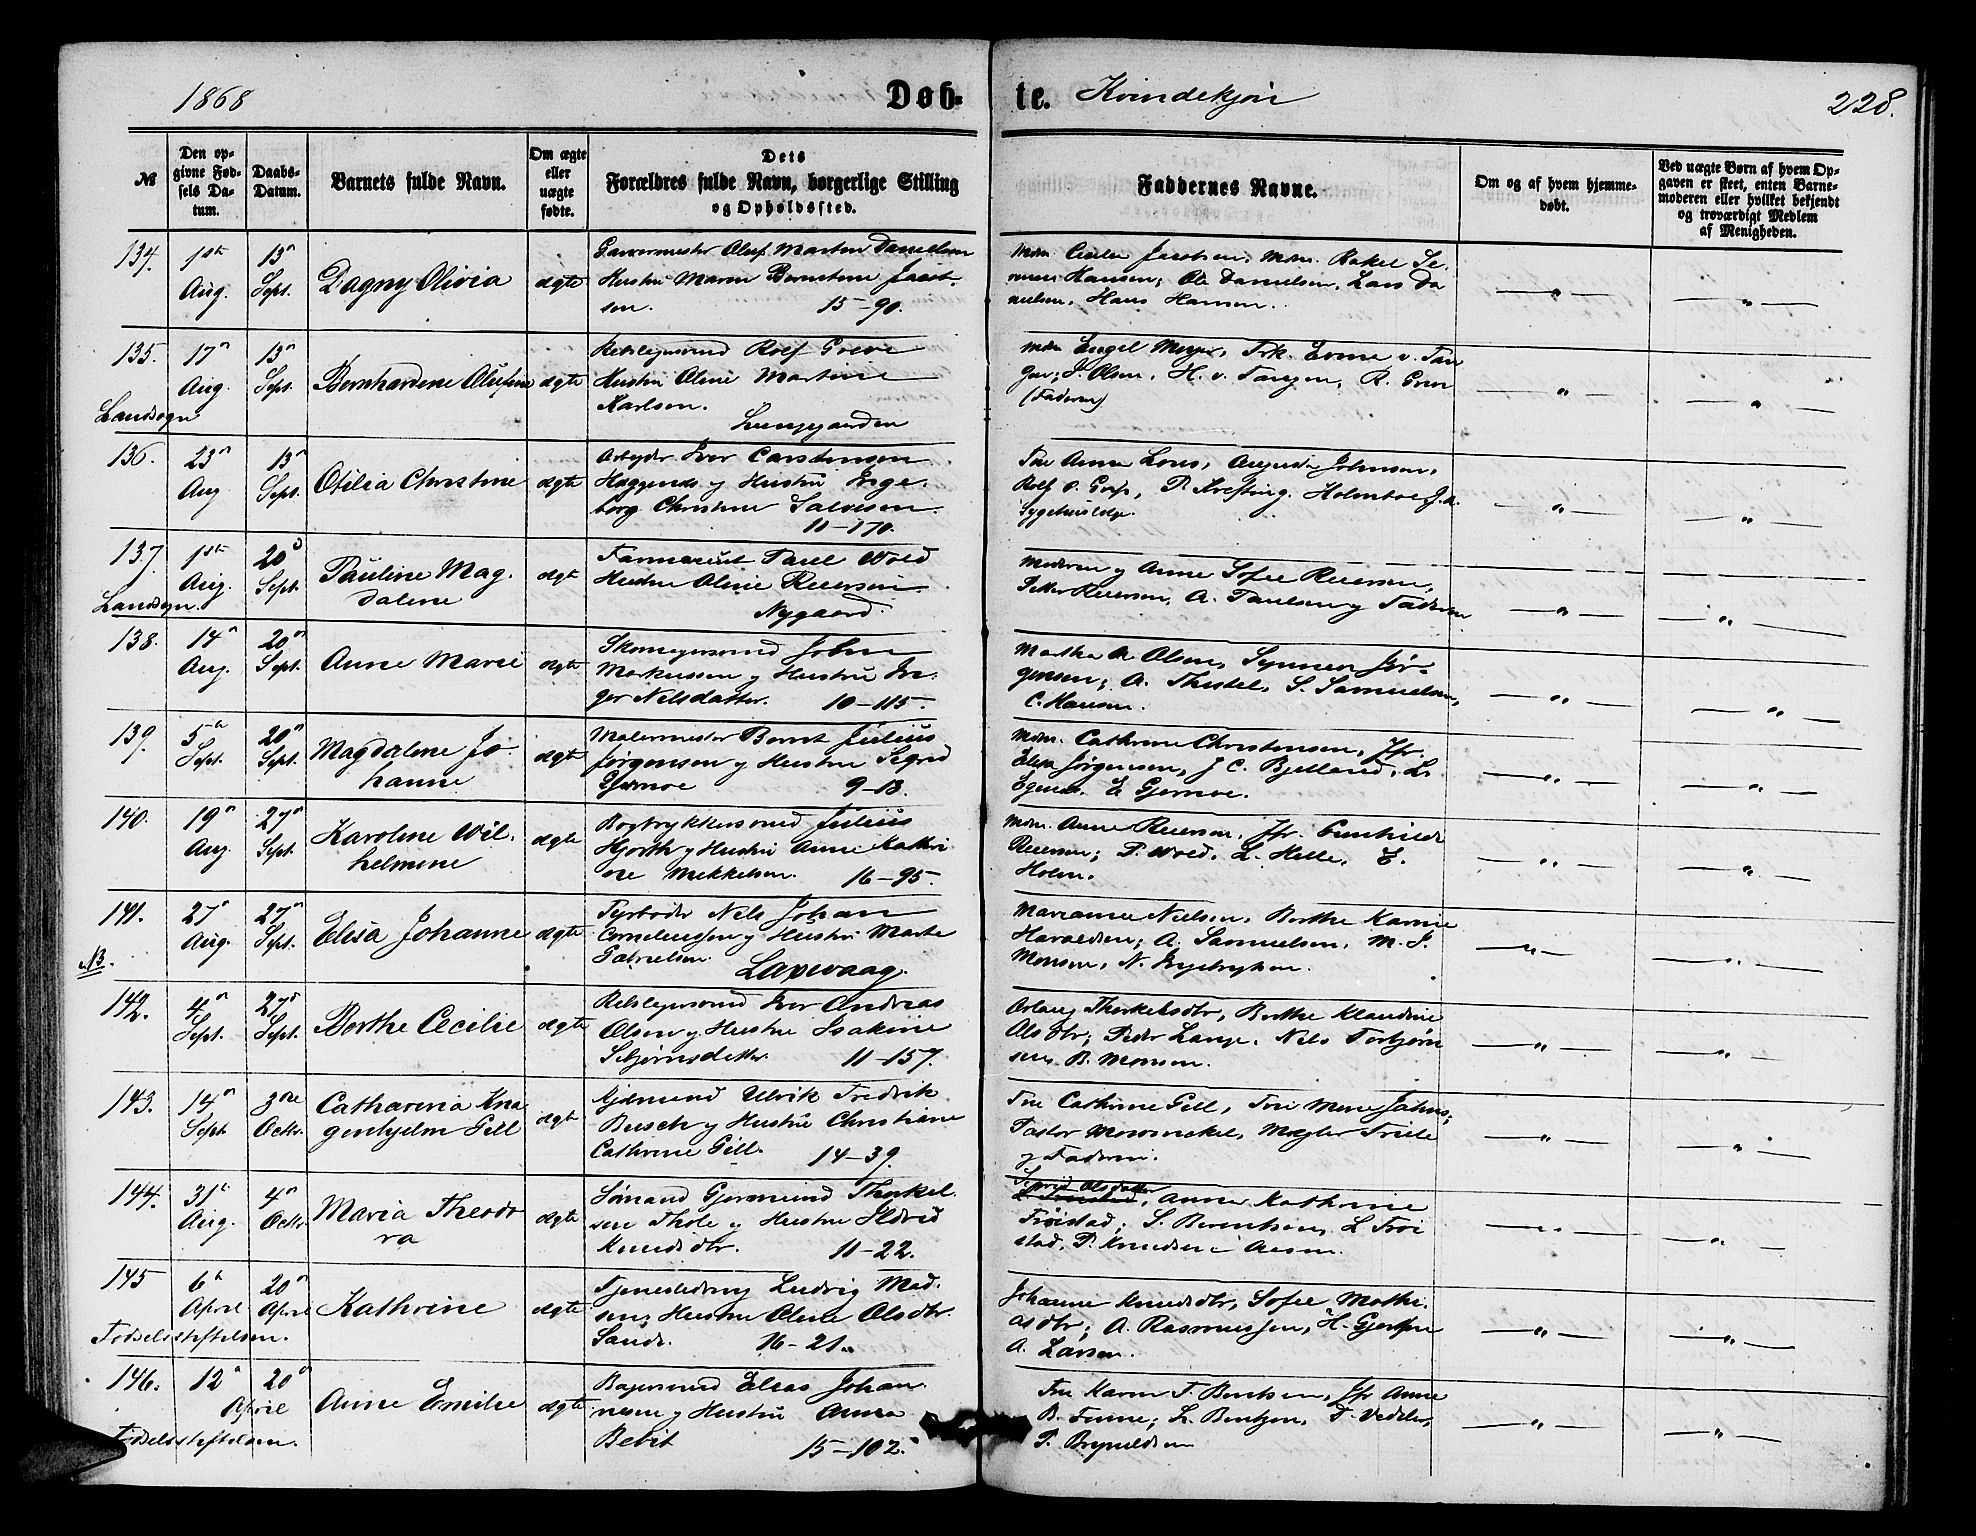 1868 Døb- te. Kvindekjøn 228.
№ Den opgivne Fødsels Datum. Daabs-Datum. Barnets fulde Navn. Om ægte eller uægte fødte. Dets Forældres fulde Navn, borgerlige Stilling og Opholdssted. Faddernes Navne. Om og af hvem hjemmedøbt. Ved uægte Børn af hvem Opgaven er skeet, enten Barnemoderen eller hvilket bekjendt og troværdigt Medlem af Menigheden.
134. 1ste Aug. 13n Sept. Dagny Olivia ægte
Garvermester Oluf Martin Danielsen
Hustru Maren Berntine Jacobsen. 15-90.
Mdm. Cecilie Jacobsen, Mdm. Rakel
Hansen; Ole Danielsen, Lars Danielsen, Hans Hansen.
135. 17n Aug. 13n Sept. Bernhardine Olufine ægte
Landsogn
Rebslagersvend Rolf Greve
Hustru Oline Martine
Karlsen.
Lungegaarden
Mdm. Engel Meyer, Frk. Emma v. Tangen; J. Olsen, H. v. Tangen, R. Greve
(Faderen)
136. 23n Aug. 13n Sept. Otilia Christine ægte
Arbeider Iver Carstensen
Haggernes og Hustru Ingeborg Christine Salvesen.
11-170.
Fru Anna Lous, Augusta Johnsen,
137. 1ste Aug. 20d Sept. Pauline Magdalene ægte
Landsogn.
Farmaceut Paul Wold
Hustru Oline Reiersen.
Nygaard.
Moderen og Anne Sofie Reiersen,
Petter Reiersen, A. Paulsen og Faderen
138. 14n Aug. 20n Sept. Anne Marie ægte
Skomagersvend John
Markussen og Hustru Inger Nilsdatter. 10-115.
Martha M Olsen, Synneva Jørgensen; A. Thistel, S. Samuelsen,
C. Hansen.
139. 5n Sept. 20n Sept. Magdalene Johanne ægte
Malermester Bernt Julius
Jørgensen og Hustru Sigrid
Gjermoe 9-13.
Mdm. Cathrine Christensen, Jfr.
Elisa Jørgensen, J. C. Bjelland, L.
Egenes, E Gjermoe.
140. 19n Aug 27n Sept Karoline Wilhelmine ægte
Bogtrykkersvend Julius
Hjorth og Hustru Anne Kathrine Mekkelsen. 16-95.
Mdm. Anne Reiersen, Jfr. Gunhilde
Reiersen; P. Wold, L. Helle, E.
Holm.
141. 27n Aug. 27n Sept. Elisa Johanne ægte
NB.
Fyrbøder Nils Johan
Corneliussen og Hustru Marta
Gabrielsen. Laxevaag.
Marianne Nielsen, Berthe Karine
Haraldsen; A. Samuelsen, M. J.
Monsen, N. Ingebrigtsen.
142. 4n Sept. 27n Sept. Berthe Cecilie ægte
Rebslagersvend Iver Andreas
Olsen og Hustru Isakine
Sebjørnsdatter. 11-157.
Aslaug Thorkelsdtr, Berthe Klaudine
Olsdtr; Peder Lange, Nils Torbjørnsen, B. Monsen.
143. 14n Sept 3die Octbr. Catharina Knagenhjelm Gill ægte
Kjøbmand Ulrik Fredrik
Busch og Hustru Christiane
Cathrine Gill. 14-39.
Fru Cathrine Gill, Fru Marie Jahns;
Pastor Mowinckel, Mægler Friele
og Faderen.
144. 31n Aug. 4n Octbr Maria Theodora ægte
Sømand Gjermund Thorkelsen Thole og Hustru Ildrid
Knudsdtr. 11-22.
Sigrid Olsdatter
Anna Kathrine
Frøistad; S. Berentsen, L Frøistad, P. Knudsen
145 6n April 20n April Kathrine ægte
Fødselsstiftelsen.
Tjenestedreng Ludvig Madsen, Hustru Oline Olsdtr.
Sande. 16-21.
Johanne Knudsdtr, Sofie Mathiasdtr; A. Rasmussen, H. Gjertsen
A. Larsen.
146. 12n 20n April Anne Emilie ægte
Fødselsstiftelsen.
Bagersvend Elias Johannesen og Hustru Anna
Bebit 15-102.
Fru Karen T. Bentsen, Jfr Anne
B. Fenne; L. Bentzon, F. Vedeler,
P. Brynildsen